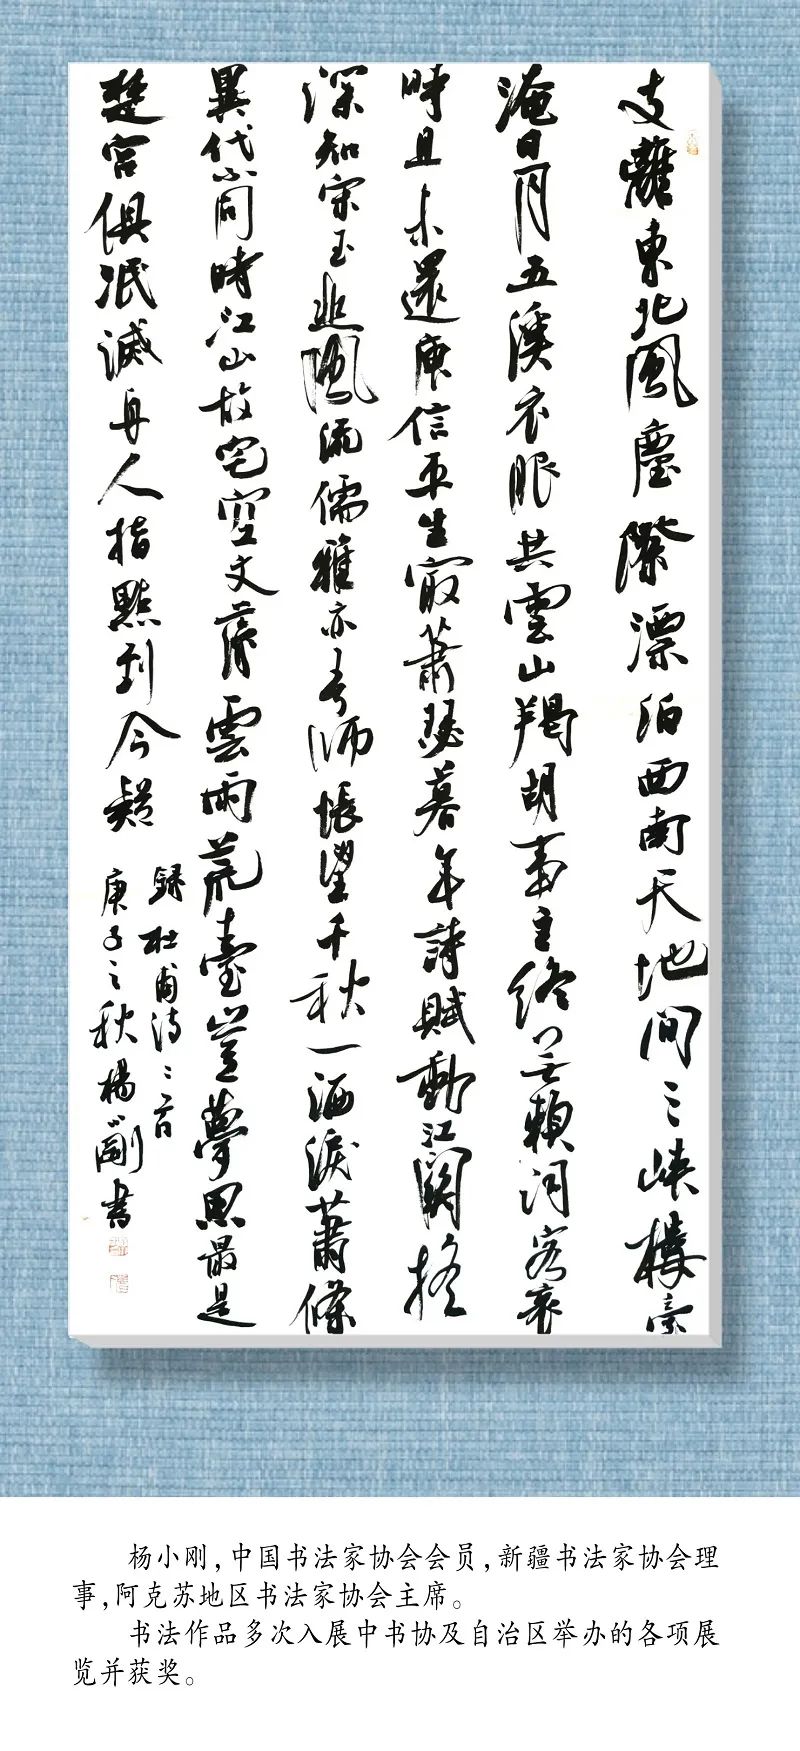 支離東北風塵際漂泊西南天地間三峽樓臺
淹日月五溪衣服共雲山羯胡事主終無賴詞客哀
時且未還庾信平生最蕭瑟暮年詩賦動江關搖
深知宋玉悲風流儒雅亦吾師悵望千秋一洒淚蕭條
異代不同時江山故宅空文藻雲雨荒臺豈夢思最是
楚宮俱泯滅舟人指點到今疑
録杜甫詩二首
庚子之秋楊小剛書
杨小刚,中国书法家协会会员,新疆书法家协会理
事,阿克苏地区书法家协会主席。
书法作品多次入展中书协及自治区举办的各项展
览并获奖。